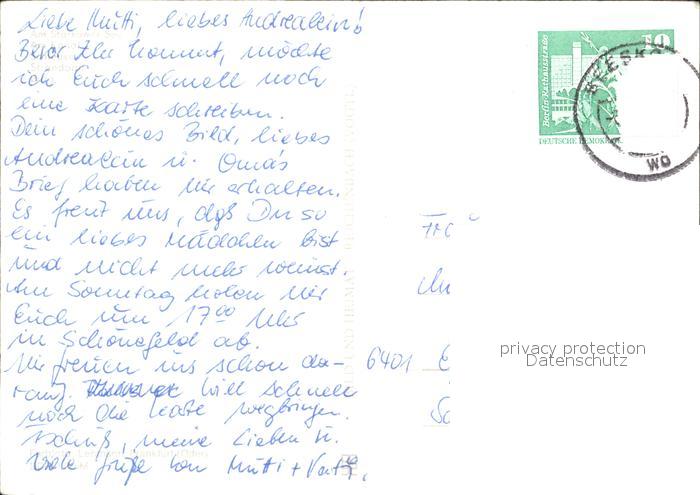 Liebe Mutti, liebes Andrealein!
Bevor Ihr kommt, möchte
ich Euch schnell noch
eine Karte schreiben.
Dein schönes Bild, liebes
Andrealein u. Omas
Brief haben wir erhalten.
Es freut uns, daß Du so
ein liebes Mädchen bist
und nicht mehr weinst.
Am Sonntag holen wir
Euch um 17⁰⁰ Uhr
in Schönefeld ab.
Wir freuen uns schon da-
rauf. will schnell
noch die Karte wegbringen.
Tschüß, meine Lieben u.
viele Grüße von Mutti + Vati.
10
Berlin-Rathausstraße
DEUTSCHE DEMOKR
BEESK
6401
privacy protection
Datenschutz